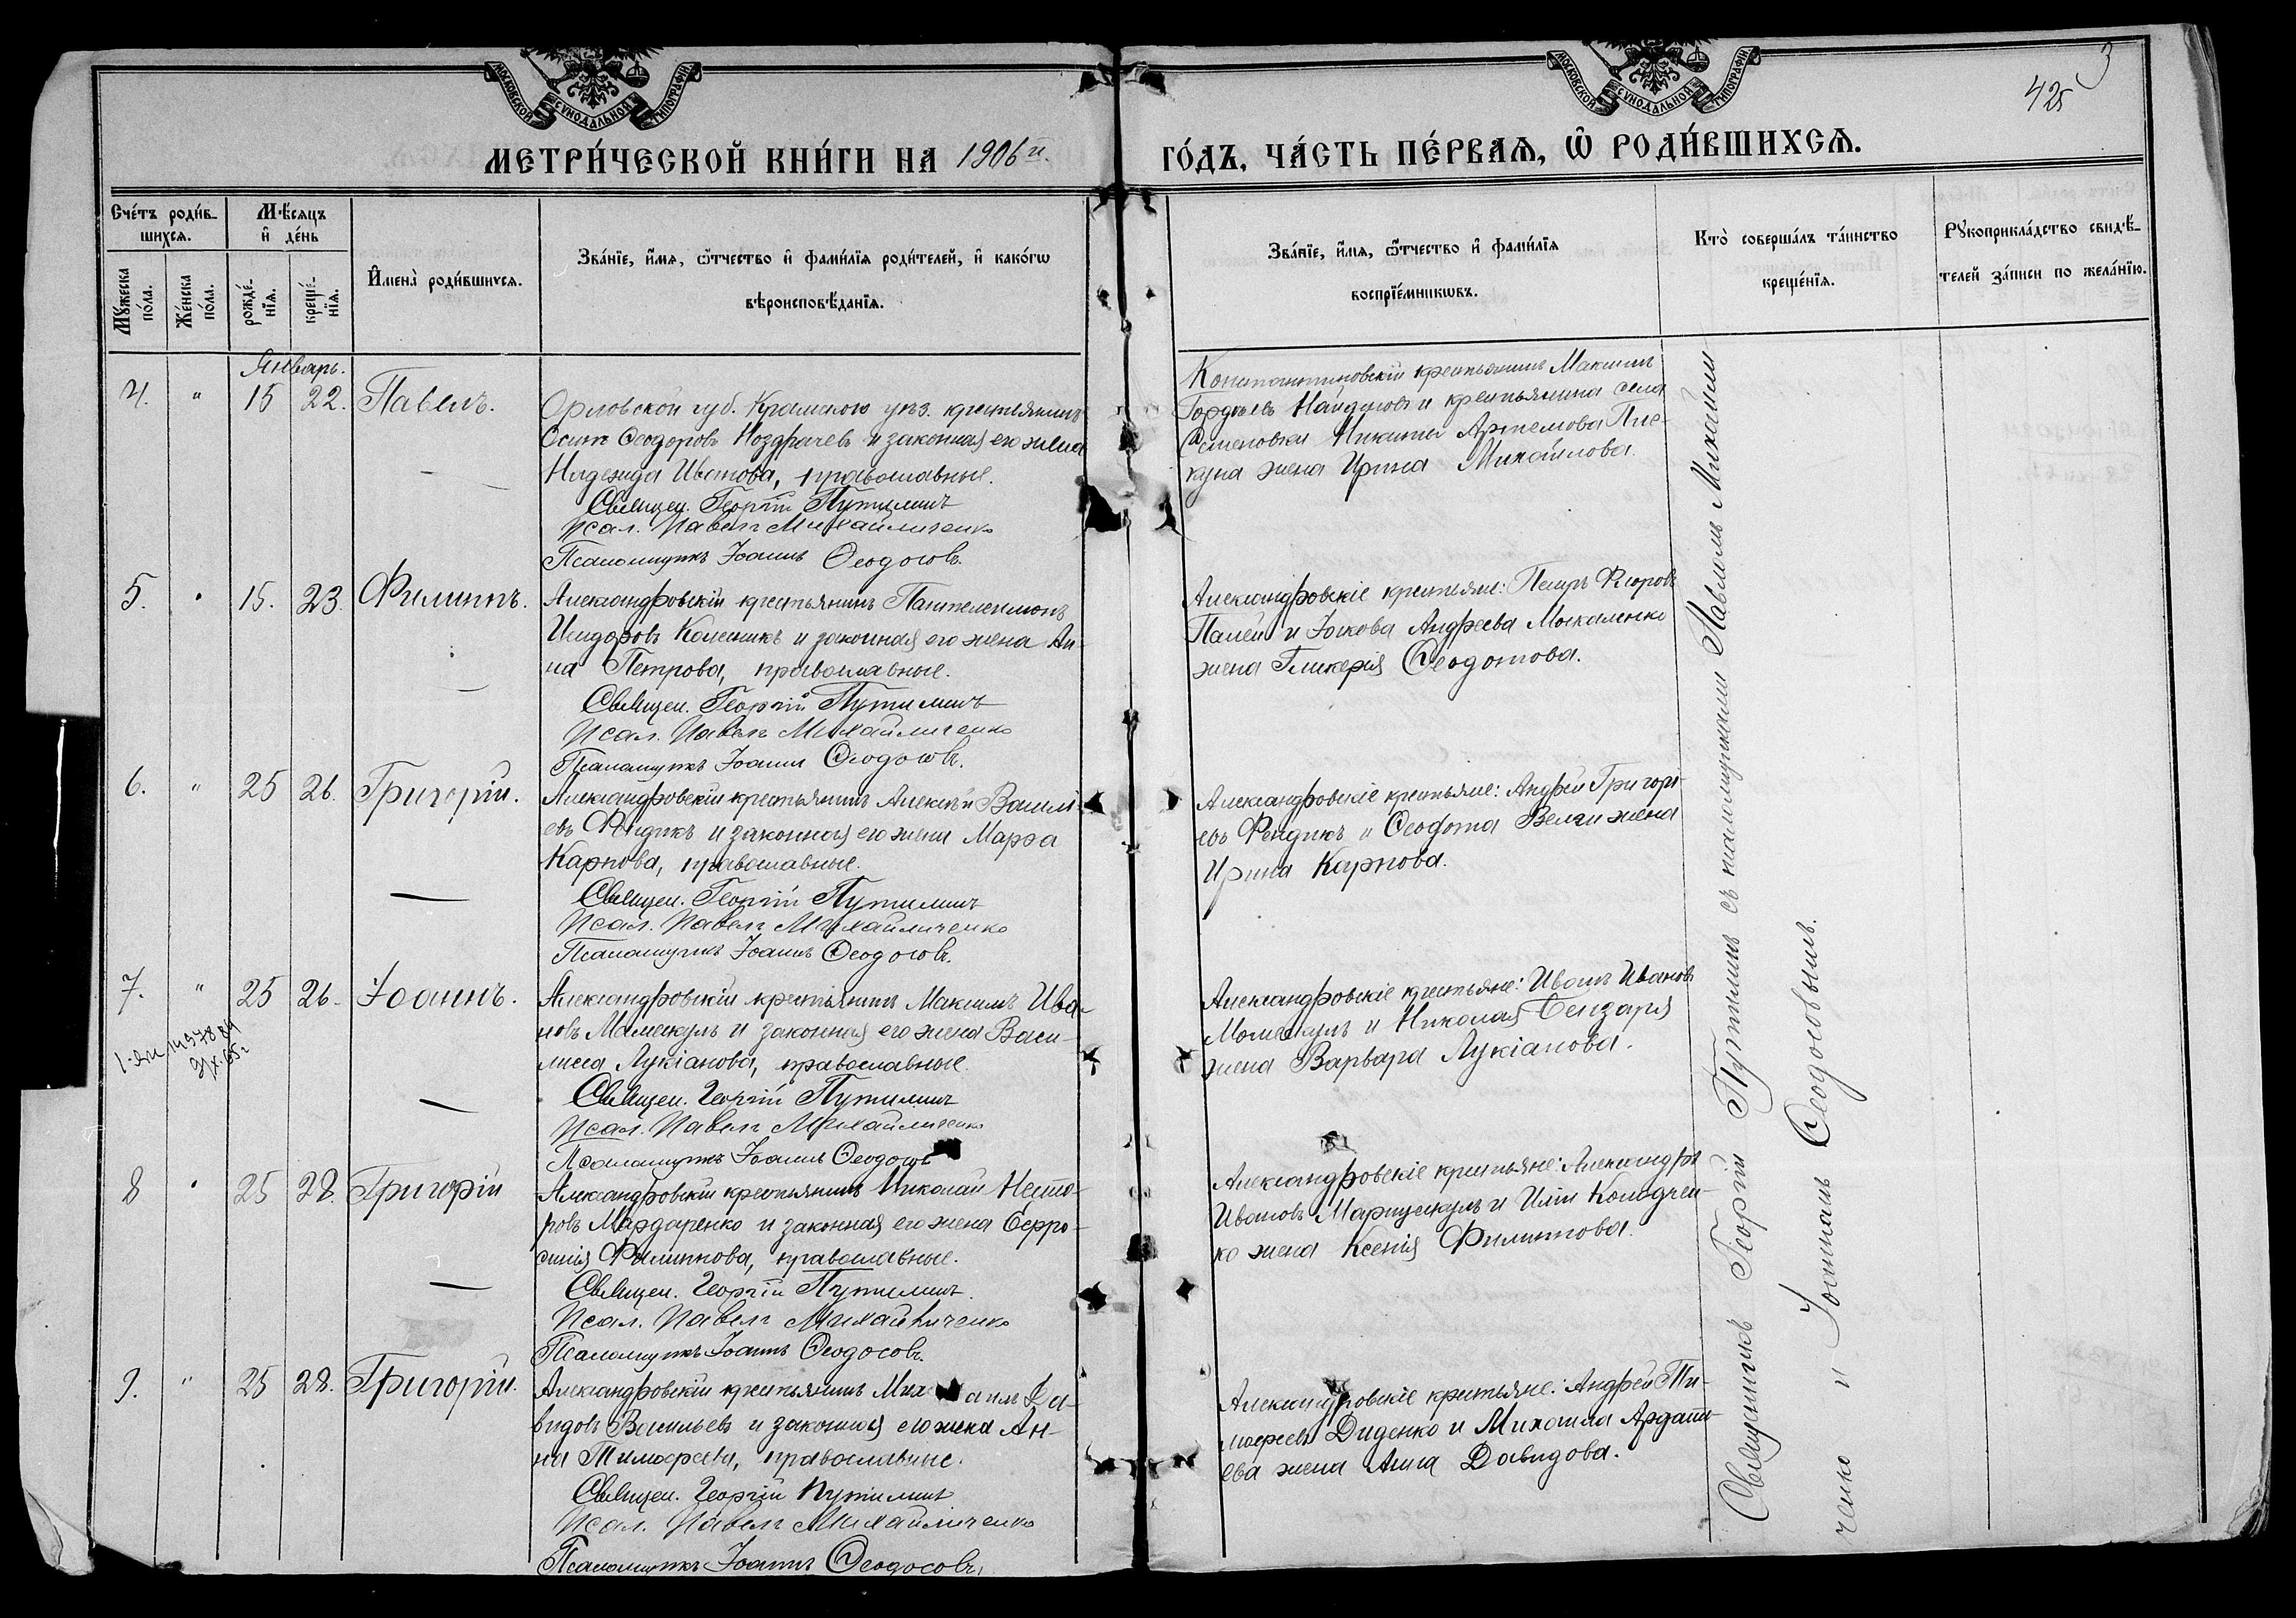 МОСКОВСКОЙ СѴНОДАЛЬНОЙ ТИПОГРАФІИ
МОСКОВСКОЙ СѴНОДАЛЬНОЙ ТИПОГРАФІИ
3
425
МЕТРИ́ЧЕСКОЙ КНИ́ГИ НА 1906 й.
ГО́ДЪ, ЧА́СТЬ ПЕ́РВАѦ, Ѽ РОДИ́ВШИХСѦ.
Сче́тъ роди́в-
шихсѧ.
Мѣ́сѧцъ
и҆ де́нь
Мꙋ́жеска
по́ла.
Же́нска
по́ла.
рожде́-
нїѧ.
креще́-
нїѧ.
И҆мена̀ роди́вшихсѧ.
Зва́нїе, и҆́мѧ, ѻ҆́тчество и҆ фами́лїѧ роди́телей, и҆ како́гѡ
вѣроисповѣ́данїѧ.
Зва́нїе, и҆́мѧ, ѻ҆́тчество и҆ фами́лїѧ
воспрїе́мникѡвъ.
Кто̀ соверша́лъ та́инство
креще́нїѧ.
Рꙋкоприкла́дство свидѣ́-
телей за́писи по жела́нїю.
Январь.
4. " 15 22. Павелъ.
Орловской губ. Кромского уѣз. крестьянинъ
Осипъ Ѳеодоровъ Ноздрачевъ и законная его жена
Надежда Иванова, православные.
Священ. Георгій Путилинъ
Псал. Павелъ Михайличенко
Псаломщикъ Іоаннъ Ѳеодосовъ.
Константиновскій крестьянинъ Максимъ
Гордѣевъ Найдиовъ и крестьянина села
Семеновки Никиты Артемова Пле-
куна жена Ирина Михайлова.
5. " 15. 23. Филиппъ.
Александровскій крестьянинъ Пантелеимонъ
Исидоровъ Колесникъ и законная его жена Ан-
на Петрова, православные.
Священ. Георгій Путилинъ
Псал. Павелъ Михайличенко
Псаломщикъ Іоаннъ Ѳеодосовъ.
Александровскіе крестьяне: Петръ Флоровъ
Палѣй и Іакова Андреева Москаленко
жена Гликерія Ѳеодотова.
6. " 25 26. Григорій.
Александровскій крестьянинъ Алексѣй Василі-
евъ Фендикъ и законная его жена Марѳа
Карпова, православные.
Священ. Георгій Путилинъ
Псал. Павелъ Михайличенко
Псаломщикъ Іоаннъ Ѳеодосовъ.
Александровскіе крестьяне: Андрей Григорі-
евъ Фендикъ и Ѳеофота Велги жена
Ирина Карпова.
7. " 25 26. Іоаннъ.
Александровскій крестьянинъ Максимъ Ива-
новъ Мамескулъ и законная его жена Васи-
лисса Лукіанова, православные.
Священ. Георгій Путилинъ
Псал. Павелъ Михайличенко
Псаломщикъ Іоаннъ Ѳеодосовъ
Александровскіе крестьяне: Иванъ Ивановъ
Момескулъ и Николая Бендаря
жена Варвара Лукіанова.
8 " 25 28. Григорій
Александровскій крестьянинъ Николай Несто-
ровъ Мардаренко и законная его жена Евфро-
синія Филиппова, православные.
Священ. Георгій Путилинъ.
Псал. Павелъ Михайличенко
Псаломщикъ Іоаннъ Ѳеодосовъ.
Александровскіе крестьяне: Александръ
Ивановъ Марцускулъ и Иліи Колодчен-
ко жена Ксенія Филиппова.
9. " 25 28. Григорій.
Александровскій крестьянинъ Михаилъ Да-
видовъ Васильевъ и законная его жена Ан-
на Тимофеева, православные.
Священ. Георгій Путилинъ
Псал. Павелъ Михайличенко
Псаломщикъ Іоаннъ Ѳеодосовъ.
Александровскіе крестьяне: Андрей Ти-
мофеевъ Диденко и Михаила Ардати-
ева жена Анна Давидова.
Священникъ Георгій Путилинъ съ псаломщиками Павломъ Михайли
ченко и Іоанномъ Ѳеодосовымъ.